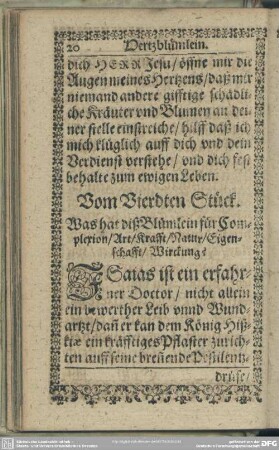 20 Hertzblümlein.
dich HERR Jesu/ öffne mir die
Augen meines Hertzens/ daß mir
niemand andere gifftige schädli-
che Kräuter vnd Blumen an dei-
ner stelle einstreiche/ hilff daß ich
mich klüglich auff dich vnd dein
Verdienst verstehe/ vnd dich fest
behalte zum ewigen Leben.
Vom Vierdten Stück.
Was hat diß Blümlein für Com-
plexion/ Art/ Krafft/ Natur/ Eigen-
schafft/ Wirckung?
ESaias ist ein erfahr-
ner Doctor/ nicht allein
ein bewerther Leib vnnd Wund-
artzt/ dañ er kan dem König Hiß-
kiæ ein kräfftiges Pflaster zurich-
ten auff seine breñende Pestilentz-
drüse/